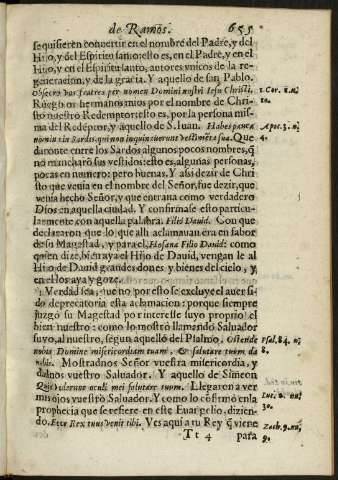 de Ramos. 655
se quisieren conuertir en el nombre del Padre, y del
Hijo, y del Espiritu santo: esto es, en el Padre, y en el
Hijo, y en el Espiritu santo, autores vnicos de la re-
generacion, y de la gracia. Y aquello de san Pablo.
Obsecro vos fratres per nomen Domini nostri Iesu Christi.
1. Cor. 1. n.
10.
Ruego os hermanos mios por el nombre de Chri-
sto nuestro Redemptor: esto es, por la persona mis-
ma del Redẽptor, y aquello de S. Iuan. Habes pauca
Apoc. 3. n.
4.
nomina in Sardis, qui non inquinauerunt vestimẽta sua. Que
daronte entre los Sardos algunos pocos nombres, q̃
nõ mancharõ sus vestidos: esto es, algunas personas,
pocas en numero: pero buenas. Y assi dezir de Chri
sto que venia en el nombre del Señor, fue dezir, que
venia hecho Señor, y que entraua como verdadero
Dios en aquella ciudad. Y confirmase esto particu-
larmente con aquella palabra. Filio Dauid. Con que
declararon que lo que alli aclamauan era en fabor
de su Magestad, y para el, Hosana Filio Dauid: como
quien dize, bien aya el Hijo de Dauid, vengan le al
Hijo de Dauid grandes dones y bienes del cielo, y
en el los aya y goze.
Verdad sea, que no por esto se excluye el auer si-
do deprecatoria esta aclamacion: porque siempre
juzgò su Magestad por interesse suyo proprio el
bien nuestro: como lo mostrò llamando Saluador
suyo, al nuestro, segun aquello del Psalmo, Ostende
Psal. 84. n.
8.
nobis Domine misericordiam tuam, & salutare tuum da
nobis. Mostradnos Señor vuestra misericordia, y
dadnos vuestro Saluador. Y aquello de Simeon
Quia viderunt oculi mei salutare tuum. Llegaron a ver
Luc. 2. nu.
30.
mis ojos vuestro Saluador. Y como lo cõfirmò en la
prophecia que se refiere en este Euangelio, dizien-
do. Ecce Rex tuus venit tibi. Ves aqui a tu Rey q̃ viene
Zach. 9. nu.
9.
Tt 4 para